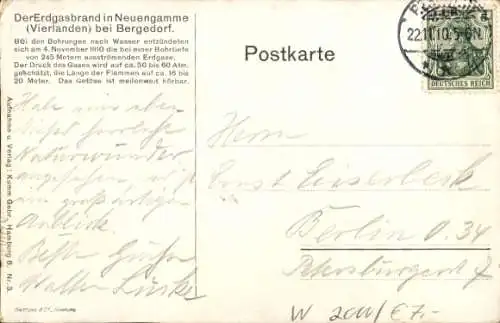 Der Erdgasbrand in Neuengamme
(Vierlanden) bei Bergedorf.
Bei den Bohrungen nach Wasser entzündeten
sich am 4. November 1910 die bei einer Bohrtiefe
von 245 Metern ausströmenden Erdgase.
Der Druck des Gases wird auf ca. 50 bis 60 Atm.
geschätzt, die Länge der Flammen auf ca. 15 bis
20 Meter. Das Getöse ist meilenweit hörbar.
Habe mir eben
dieses herrliche
Naturwunder
angesehen,
ein großartiger
Anblick.
Beste Grüße
Walter
Aufnahme u. Verlag: Kamm Gebr., Hamburg 6. Nr. 3.
Postkarte
22.11.10. 5-6N.
DEUTSCHES REICH
Herrn
Ernst
Berlin O. 34
Petersburgerstr
W 2011/€7,-